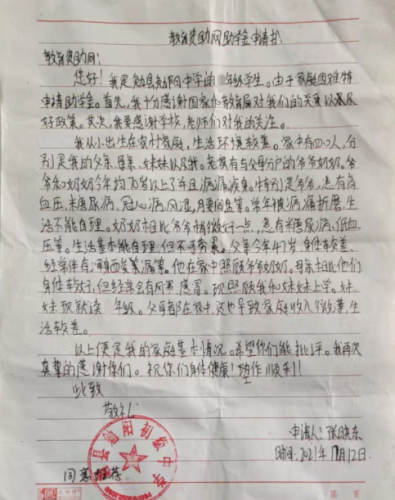 教育资助网助学金申请书
教育资助网:
您好!我是勉县勉阳中学 年级学生。由于家庭困难特
申请助学金。首先,我十分感谢国家和教育局对我们的关爱以及
好政策。其次,我要感谢学校,老师们对我的关注。
我从小出生在农村家庭,生活环境较差。家中有四口人,分
别是我的父亲、母亲、妹妹以及我。老家有与父母分户的爷爷奶奶。爷
爷和奶奶今年均 岁以上了并且病痛缠身。特别是爷爷,患有高
血压,糖尿病,冠心病,风湿,腰间盘等。常年被病痛折磨生
活不能自理。奶奶相比爷爷稍微好一点,患有糖尿病、低血
压等。生活基本能自理,但不可劳累。父亲今年47岁,身体较差,
经常伴有 等。他在家中照顾爷爷奶奶。母亲相比他们
身体较好,但经常会有风寒,感冒。现照顾我和妹妹上学。妹
妹现就读 年级。父母都在家中,这也导致家庭收入微薄,生
活较差。
以上便是我的家庭基本情况。希望你们能批评。我再次
真挚的感谢你们。祝你们身体健康!工作顺利!
此致
敬礼
县勉阳初级中学
申请人:张晓东
时间:2021年 月12日
同意推荐